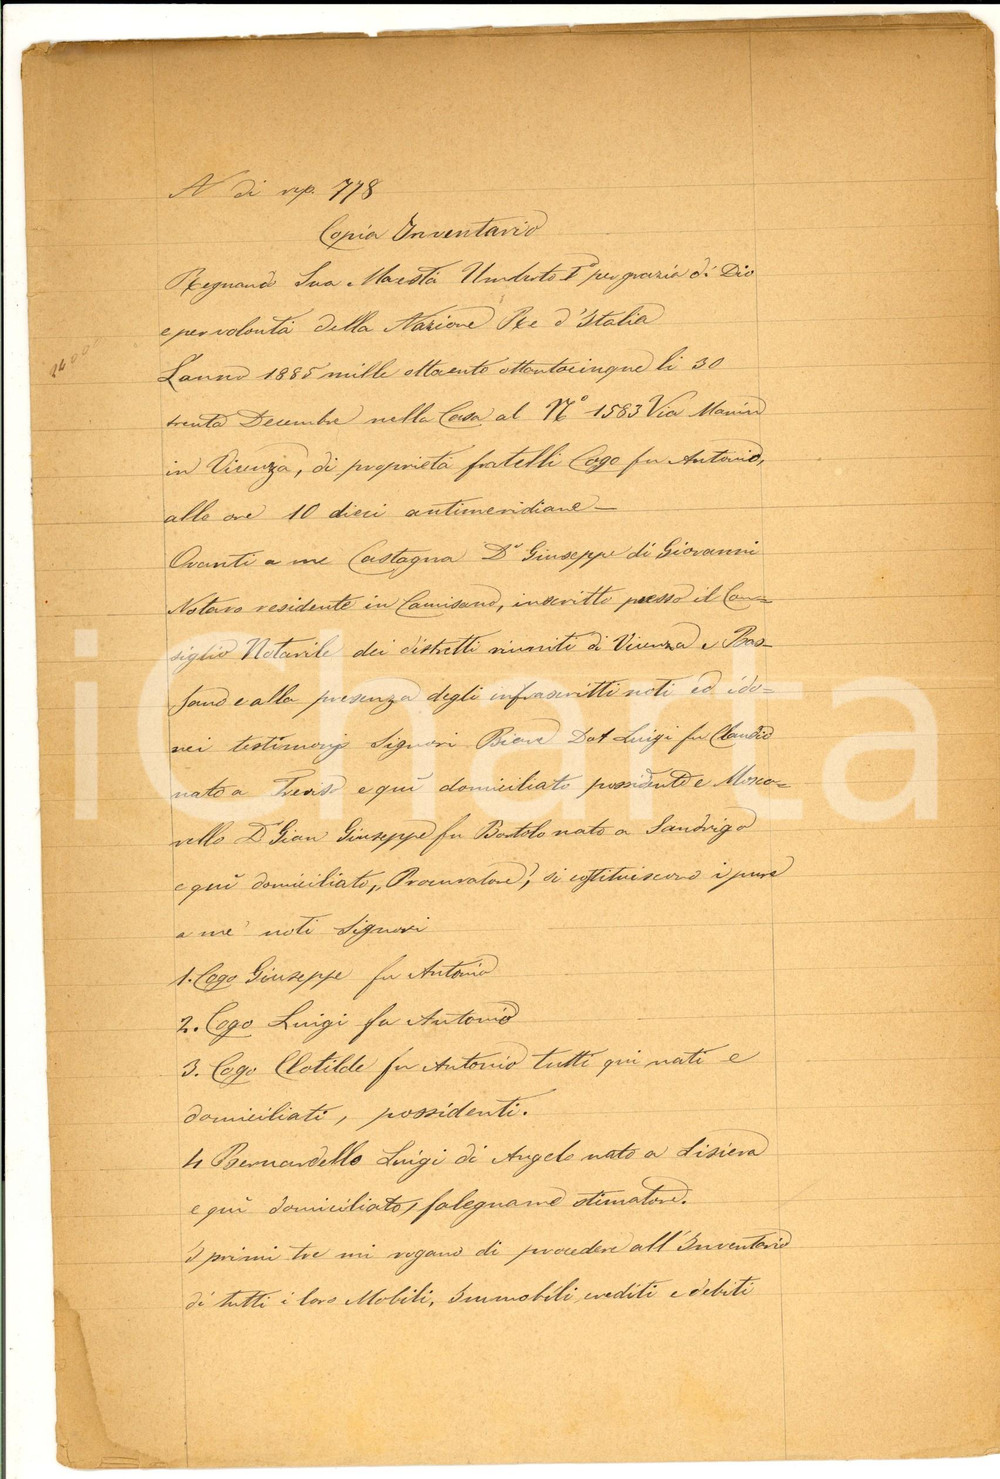 N di rep. 778
Copia Inventario
Regnando Sua Maestà Umberto I° per grazia di Dio
e per volontà della Nazione Re d'Italia
1400
L'anno 1885 mille ottocento ottantacinque li 30
trenta Decembre nella Casa al N° 1583 Via Manin
in Vicenza, di proprietà fratelli Cogo fu Antonio,
alle ore 10 dieci antimeridiane —
Avanti a me Castagna Dr Giuseppe di Giovanni
Notaro residente in Camisano, inscritto presso il Con=
siglio Notarile dei distretti riuniti di Vicenza e Bas=
sano e alla presenza degli infrascritti noti ed ido=
nei testimonj Signori Dot Luigi fu Claudio
nato a Treviso e quì domiciliato possidente e Mosco=
nello Dr Gian Giuseppe fu Bortolo nato a Sandrigo
e quì domiciliato, Procuratore, si costituiscono i pure
a me noti Signori
1. Cogo Giuseppe fu Antonio
2. Cogo Luigi fu Antonio
3. Cogo Clotilde fu Antonio tutti qui nati e
domiciliati, possidenti.
4 Bernardello Luigi di Angelo nato a Lisiera
e quì domiciliato, falegname stimatore.
I primi tre mi rogano di procedere all'Inventario
di tutti i loro Mobili, Immobili, crediti e debiti
iCharta